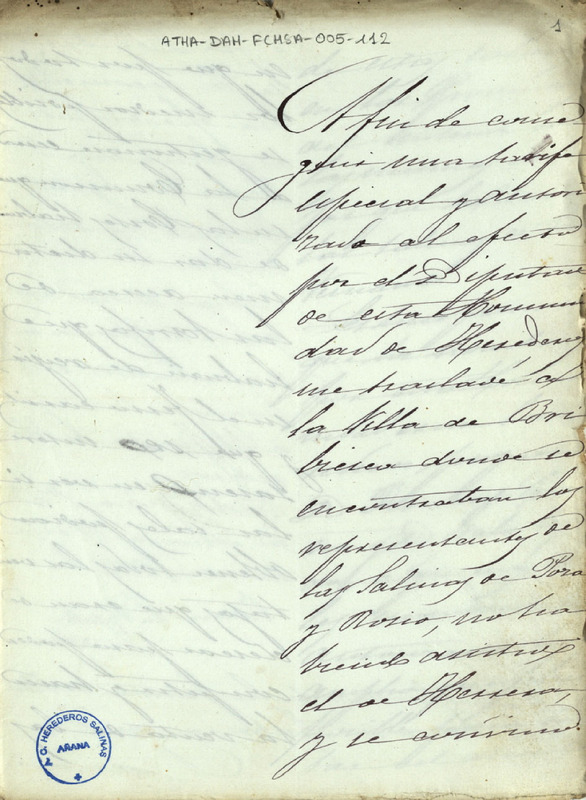 1
ATHA-DAH-FCHSA-005-112
A fin de conse
guir una tarifa
especial y autori
zado al efecto
por el Diputado
de esta Comuni
dad de Herederos
me trasladé a
la Villa de Bri
biesca donde se
encontraban los
representantes de
las Salinas de Poza
y Rosio, no ha
biendo asistido
el de Herrera,
y se convino
G. HEREDEROS SALINAS
AÑANA